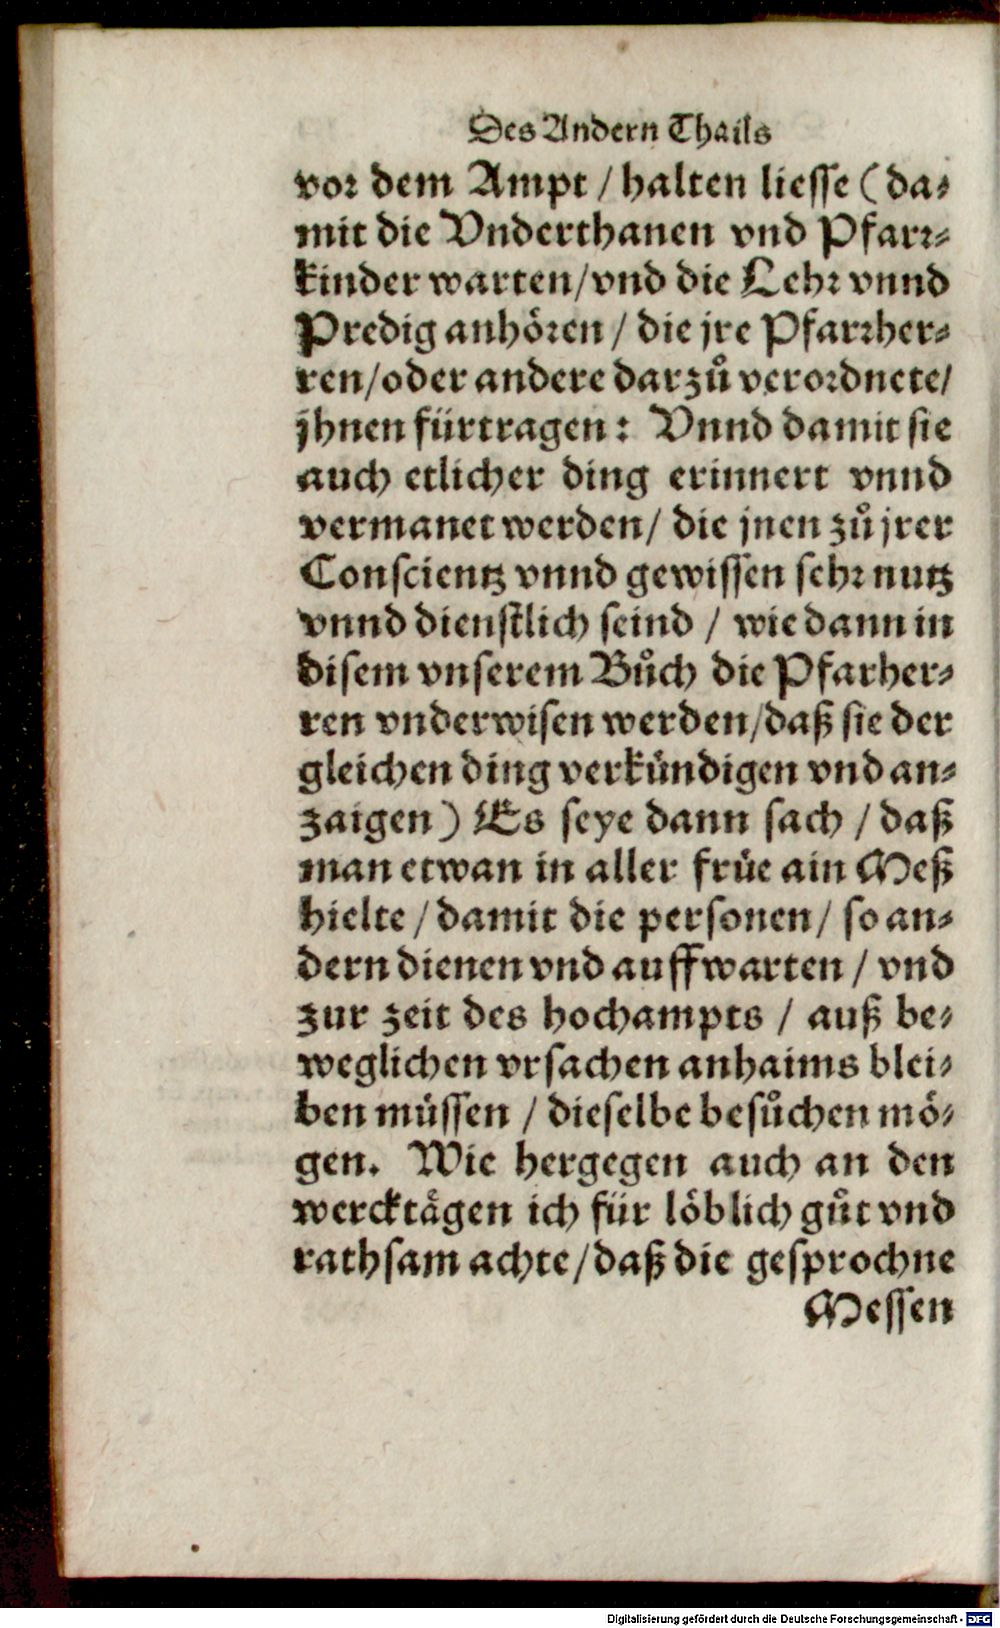 Des Andern Thails
vor dem Ampt / halten liesse (da-
mit die Vnderthanen vnd Pfarr-
kinder warten/vnd die Lehr vnnd
Predig anhören / die jre Pfarrher-
ren/oder andere darzů verordnete/
jhnen fürtragen: Vnnd damit sie
auch etlicher ding erinnert vnnd
vermanet werden/ die jnen zů jrer
Conscientz vnnd gewissen sehr nutz
vnnd dienstlich seind / wie dann in
disem vnserem Bůch die Pfarher-
ren vnderwisen werden/daß sie der
gleichen ding verkündigen vnd an-
zaigen) Es seye dann sach / daß
man etwan in aller früe ain Meß
hielte / damit die personen/ so an-
dern dienen vnd auffwarten / vnd
zur zeit des hochampts / auß be-
weglichen vrsachen anhaims blei-
ben müssen / dieselbe besůchen mö-
gen. Wie hergegen auch an den
wercktägen ich für löblich gůt vnd
rathsam achte/daß die gesprochne
Messen
Digitalisierung gefördert durch die Deutsche Forschungsgemeinschaft - DFG